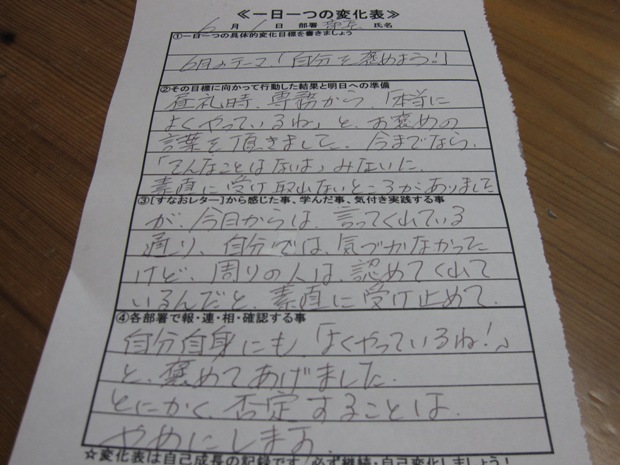 ≪一日一つの変化表≫
6月1日 部署 氏名
①一日一つの具体的変化目標を書きましょう
6月のテーマ「自分を褒めよう!」
②その目標に向かって行動した結果と明日への準備
昼礼時、専務から、「本当に
よくやっているね」と、お褒めの
言葉を頂きました。今までなら、
「そんなことはないよ」みたいに、
素直に受け取れないところがありました
③[すなおレター]から感じた事、学んだ事、気付き実践する事
が、今日からは、言ってくれている
通り、自分では、気づかなかった
けど、周りの人は、認めてくれて
いるんだと、素直に受け止めて、
④各部署で報・連・相・確認する事
自分自身にも「よくやっているね!」
と、褒めてあげました。
とにかく、否定することは、
やめにします。
☆変化表は自己成長の記録です/必ず継続・自己変化しましょう!